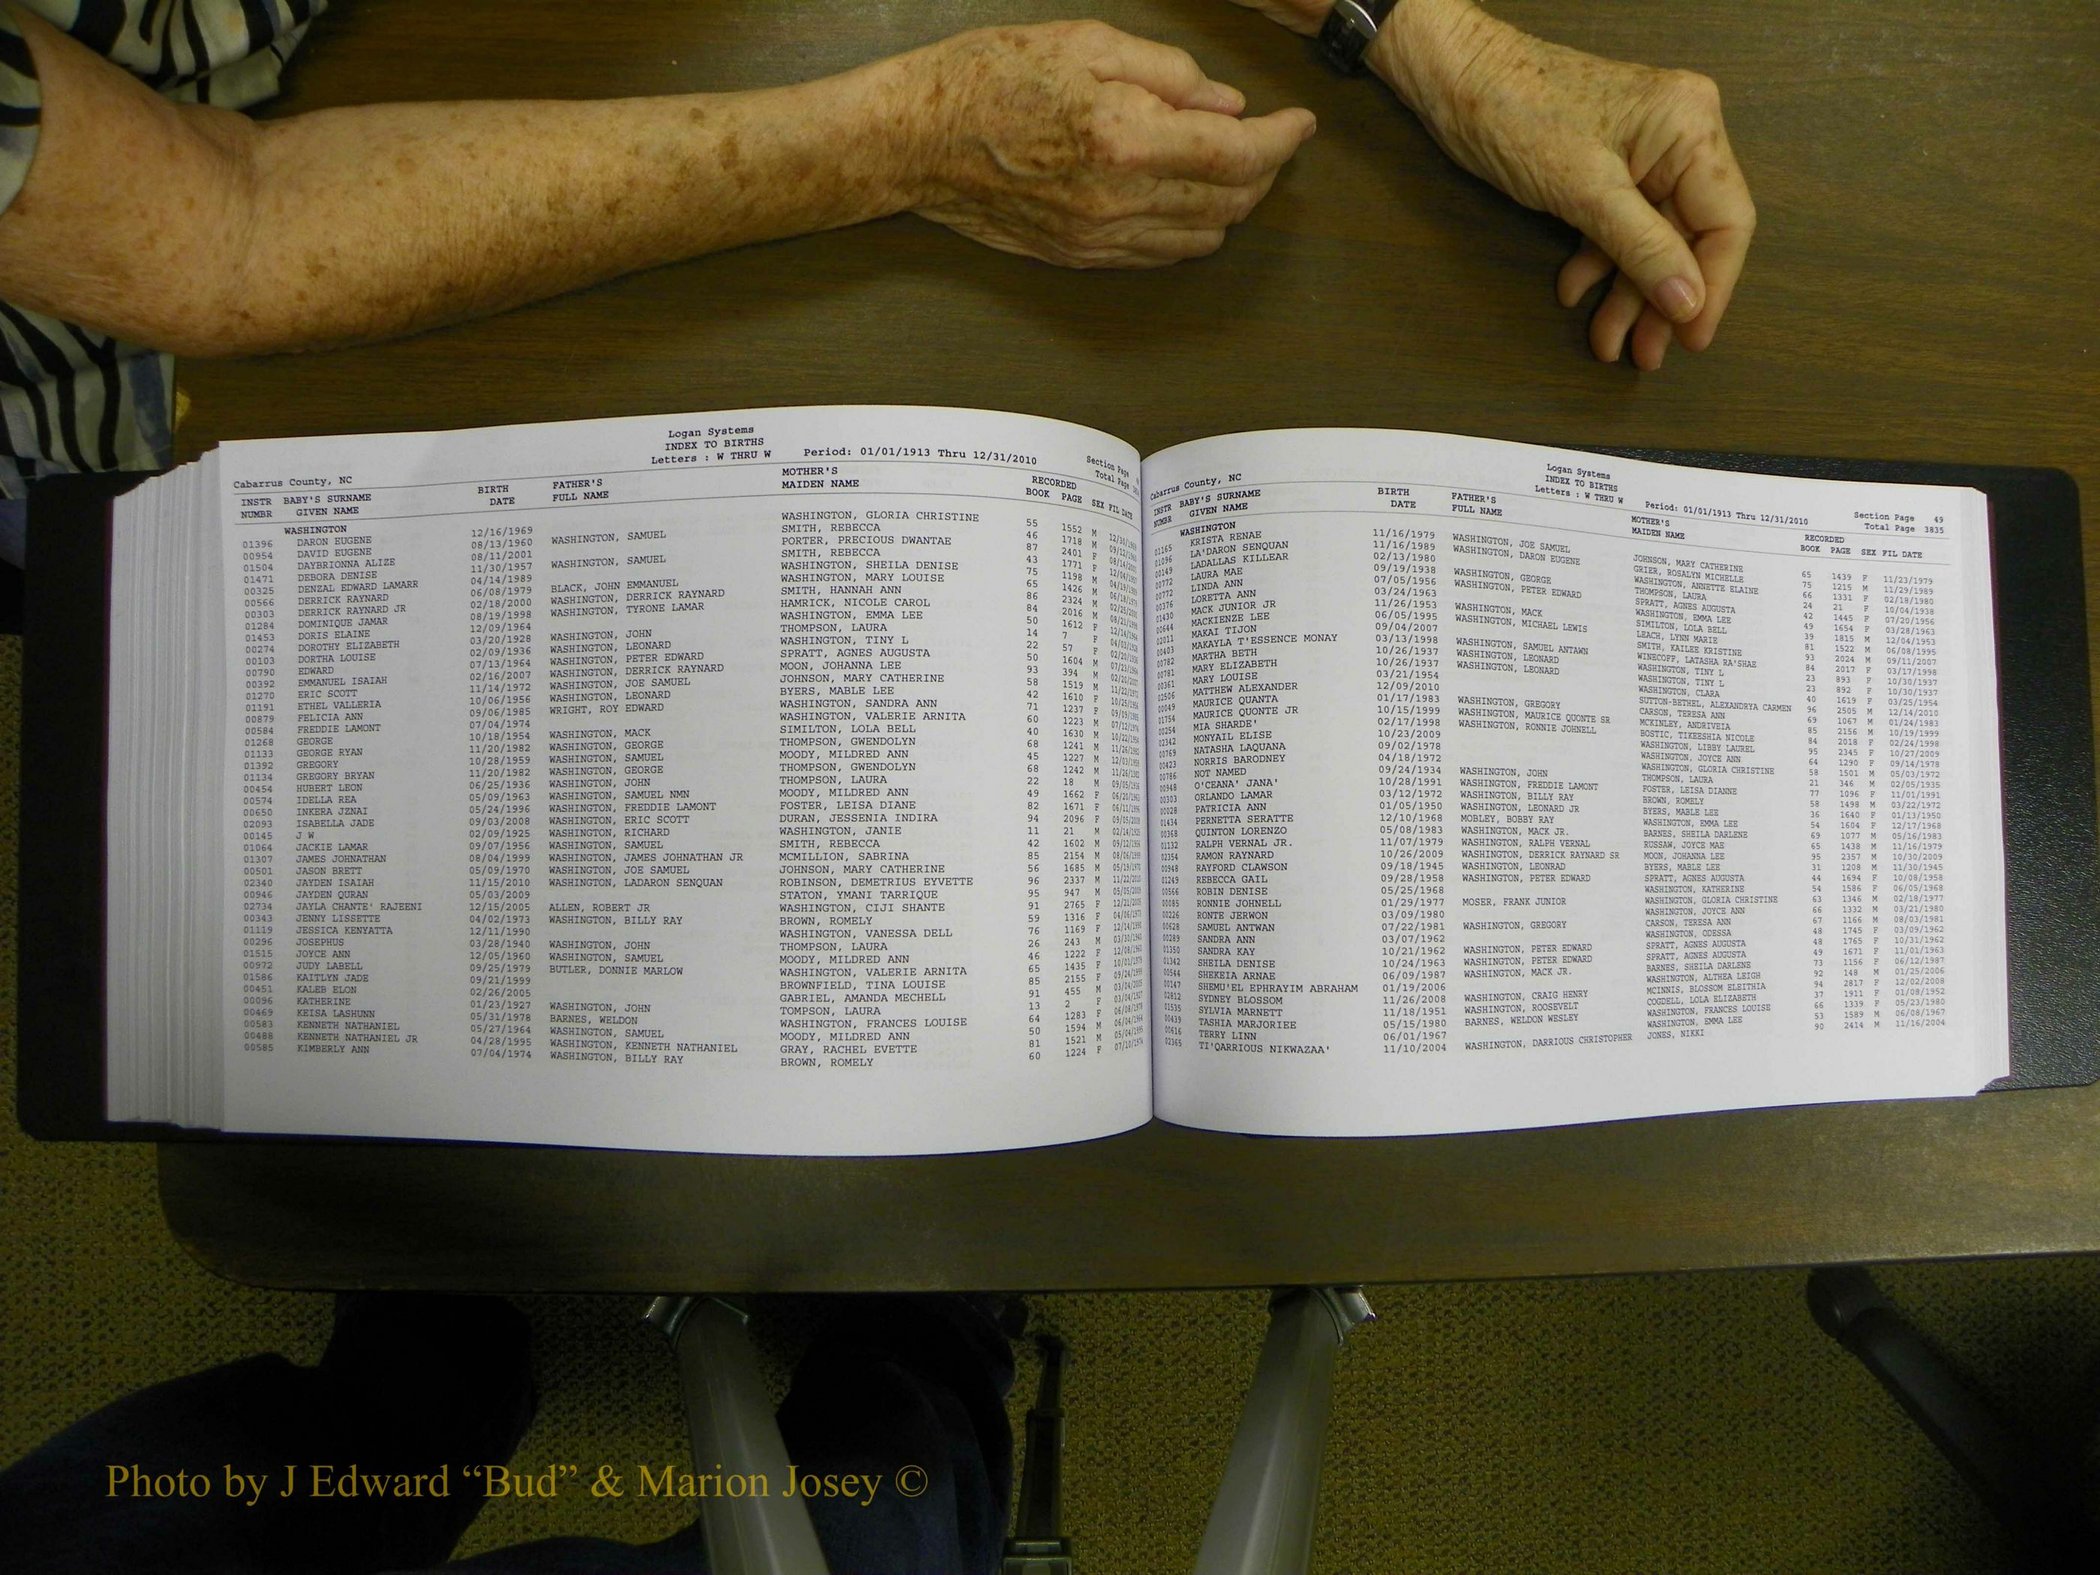 Logan Systems
INDEX TO BIRTHS
Letters : W THRU W Period: 01/01/1913 Thru 12/31/2010
Section Page
Total Page
Cabarrus County, NC
INSTR BABY'S SURNAME BIRTH FATHER'S MOTHER'S RECORDED
NUMBR GIVEN NAME DATE FULL NAME MAIDEN NAME BOOK PAGE SEX FIL DATE
WASHINGTON
01396 DARON EUGENE 12/16/1969 WASHINGTON, GLORIA CHRISTINE 55 1552 M
00954 DAVID EUGENE 08/13/1960 WASHINGTON, SAMUEL SMITH, REBECCA 46 1718 M
01504 DAYBRIONNA ALIZE 08/11/2001 PORTER, PRECIOUS DWANTAE 87 2401 F
01471 DEBORA DENISE 11/30/1957 WASHINGTON, SAMUEL SMITH, REBECCA 43 1771 F
00325 DENZAL EDWARD LAMARR 04/14/1989 WASHINGTON, SHEILA DENISE 75 1198 M
00566 DERRICK RAYNARD 06/08/1979 BLACK, JOHN EMMANUEL WASHINGTON, MARY LOUISE 65 1426 M
00303 DERRICK RAYNARD JR 02/18/2000 WASHINGTON, DERRICK RAYNARD SMITH, HANNAH ANN 86 2324 M
01284 DOMINIQUE JAMAR 08/19/1998 WASHINGTON, TYRONE LAMAR HAMRICK, NICOLE CAROL 84 2016 M
01453 DORIS ELAINE 12/09/1964 WASHINGTON, EMMA LEE 50 1612 F
00274 DOROTHY ELIZABETH 03/20/1928 WASHINGTON, JOHN THOMPSON, LAURA 14 7 F
00103 DORTHA LOUISE 02/09/1936 WASHINGTON, LEONARD WASHINGTON, TINY L 22 57 F
00790 EDWARD 07/13/1964 WASHINGTON, PETER EDWARD SPRATT, AGNES AUGUSTA 50 1604 M
00392 EMMANUEL ISAIAH 02/16/2007 WASHINGTON, DERRICK RAYNARD MOON, JOHANNA LEE 93 394 M
01270 ERIC SCOTT 11/14/1972 WASHINGTON, JOE SAMUEL JOHNSON, MARY CATHERINE 58 1519 M
01191 ETHEL VALLERIA 10/06/1956 WASHINGTON, LEONARD BYERS, MABLE LEE 42 1610 F
00879 FELICIA ANN 09/06/1985 WRIGHT, ROY EDWARD WASHINGTON, SANDRA ANN 71 1237 F
00584 FREDDIE LAMONT 07/04/1974 WASHINGTON, VALERIE ARNITA 60 1223 M
01268 GEORGE 10/18/1954 WASHINGTON, MACK SIMILTON, LOLA BELL 40 1630 M
01133 GEORGE RYAN 11/20/1982 WASHINGTON, GEORGE THOMPSON, GWENDOLYN 68 1241 M
01392 GREGORY 10/28/1959 WASHINGTON, SAMUEL MOODY, MILDRED ANN 45 1227 M
01134 GREGORY BRYAN 11/20/1982 WASHINGTON, GEORGE THOMPSON, GWENDOLYN 68 1242 M
00454 HUBERT LEON 06/25/1936 WASHINGTON, JOHN THOMPSON, LAURA 22 18 M
00574 IDELLA REA 05/09/1963 WASHINGTON, SAMUEL NMN MOODY, MILDRED ANN 49 1662 F
00650 INKERA JZNAI 05/24/1996 WASHINGTON, FREDDIE LAMONT FOSTER, LEISA DIANE 82 1671 F
02093 ISABELLA JADE 09/03/2008 WASHINGTON, ERIC SCOTT DURAN, JESSENIA INDIRA 94 2096 F
00145 J W 02/09/1925 WASHINGTON, RICHARD WASHINGTON, JANIE 11 21 M
01064 JACKIE LAMAR 09/07/1956 WASHINGTON, SAMUEL SMITH, REBECCA 42 1602 M
01307 JAMES JOHNATHAN 08/04/1999 WASHINGTON, JAMES JOHNATHAN JR MCMILLION, SABRINA 85 2154 M
00501 JASON BRETT 05/09/1970 WASHINGTON, JOE SAMUEL JOHNSON, MARY CATHERINE 56 1685 M
02340 JAYDEN ISAIAH 11/15/2010 WASHINGTON, LADARON SENQUAN ROBINSON, DEMETRIUS EYVETTE 96 2337 M
00946 JAYDEN QURAN 05/03/2009 STATON, YMANI TARRIQUE 95 947 M
02734 JAYLA CHANTE' RAJEENI 12/15/2005 ALLEN, ROBERT JR WASHINGTON, CIJI SHANTE 91 2765 F
00343 JENNY LISSETTE 04/02/1973 WASHINGTON, BILLY RAY BROWN, ROMELY 59 1316 F
01119 JESSICA KENYATTA 12/11/1990 WASHINGTON, VANESSA DELL 76 1169 F
00296 JOSEPHUS 03/28/1940 WASHINGTON, JOHN THOMPSON, LAURA 26 243 M
01515 JOYCE ANN 12/05/1960 WASHINGTON, SAMUEL MOODY, MILDRED ANN 46 1222 F
00972 JUDY LABELL 09/25/1979 BUTLER, DONNIE MARLOW WASHINGTON, VALERIE ARNITA 65 1435 F
01586 KAITLYN JADE 09/21/1999 BROWNFIELD, TINA LOUISE 85 2155 F
00451 KALEB ELON 02/26/2005 GABRIEL, AMANDA MECHELL 91 455 M
00096 KATHERINE 01/23/1927 WASHINGTON, JOHN TOMPSON, LAURA 13 2 F
00469 KEISA LASHUNN 05/31/1978 BARNES, WELDON WASHINGTON, FRANCES LOUISE 64 1283 F
00583 KENNETH NATHANIEL 05/27/1964 WASHINGTON, SAMUEL MOODY, MILDRED ANN 50 1594 M
00488 KENNETH NATHANIEL JR 04/28/1995 WASHINGTON, KENNETH NATHANIEL GRAY, RACHEL EVETTE 81 1521 M
00585 KIMBERLY ANN 07/04/1974 WASHINGTON, BILLY RAY BROWN, ROMELY 60 1224 F
Logan Systems
INDEX TO BIRTHS
Letters : W THRU W Period: 01/01/1913 Thru 12/31/2010
Section Page 49
Total Page 3835
Cabarrus County, NC
INSTR BABY'S SURNAME BIRTH FATHER'S MOTHER'S RECORDED
NUMBR GIVEN NAME DATE FULL NAME MAIDEN NAME BOOK PAGE SEX FIL DATE
WASHINGTON
01165 KRISTA RENAE 11/16/1979 WASHINGTON, JOE SAMUEL JOHNSON, MARY CATHERINE 65 1439 F 11/23/1979
01096 LA'DARON SENQUAN 11/16/1989 WASHINGTON, DARON EUGENE GRIER, ROSALYN MICHELLE 75 1215 M 11/29/1989
00149 LADALLAS KILLEAR 02/13/1980 WASHINGTON, ANNETTE ELAINE 66 1331 F 02/18/1980
00772 LAURA MAE 09/19/1938 WASHINGTON, GEORGE THOMPSON, LAURA 24 21 F 10/04/1938
00772 LINDA ANN 07/05/1956 WASHINGTON, PETER EDWARD SPRATT, AGNES AUGUSTA 42 1445 F 07/20/1956
00376 LORETTA ANN 03/24/1963 WASHINGTON, EMMA LEE 49 1654 F 03/28/1963
01430 MACK JUNIOR JR 11/26/1953 WASHINGTON, MACK SIMILTON, LOLA BELL 39 1815 M 12/04/1953
00644 MACKENZIE LEE 06/05/1995 WASHINGTON, MICHAEL LEWIS LEACH, LYNN MARIE 81 1522 M 06/08/1995
02011 MAKAI TIJON 09/04/2007 SMITH, KAILEE KRISTINE 93 2024 M 09/11/2007
00403 MAKAYLA T'ESSENCE MONAY 03/13/1998 WASHINGTON, SAMUEL ANTAWN WINECOFF, LATASHA RA'SHAE 84 2017 F 03/17/1998
00782 MARTHA BETH 10/26/1937 WASHINGTON, LEONARD WASHINGTON, TINY L 23 893 F 10/30/1937
00781 MARY ELIZABETH 10/26/1937 WASHINGTON, LEONARD WASHINGTON, TINY L 23 892 F 10/30/1937
00361 MARY LOUISE 03/21/1954 WASHINGTON, CLARA 40 1619 F 03/25/1954
02506 MATTHEW ALEXANDER 12/09/2010 SUTTON-BETHEL, ALEXANDRYA CARMEN 96 2505 M 12/14/2010
00049 MAURICE QUANTA 01/17/1983 WASHINGTON, GREGORY CARSON, TERESA ANN 69 1067 M 01/24/1983
01754 MAURICE QUONTE JR 10/15/1999 WASHINGTON, MAURICE QUONTE SR MCKINLEY, ANDRIVEIA 85 2156 M 10/19/1999
00254 MIA SHARDE' 02/17/1998 WASHINGTON, RONNIE JOHNELL BOSTIC, TIKEESHIA NICOLE 84 2018 F 02/24/1998
02342 MONYAIL ELISE 10/23/2009 WASHINGTON, LIBBY LAUREL 95 2345 F 10/27/2009
00769 NATASHA LAQUANA 09/02/1978 WASHINGTON, JOYCE ANN 64 1290 F 09/14/1978
00423 NORRIS BARODNEY 04/18/1972 WASHINGTON, GLORIA CHRISTINE 58 1501 M 05/03/1972
00786 NOT NAMED 09/24/1934 WASHINGTON, JOHN THOMPSON, LAURA 21 346 M 02/05/1935
00948 O'CEANA' JANA' 10/28/1991 WASHINGTON, FREDDIE LAMONT FOSTER, LEISA DIANNE 77 1096 F 11/01/1991
00303 ORLANDO LAMAR 03/12/1972 WASHINGTON, BILLY RAY BROWN, ROMELY 58 1498 M 03/22/1972
00028 PATRICIA ANN 01/05/1950 WASHINGTON, LEONARD JR BYERS, MABLE LEE 36 1640 F 01/13/1950
01434 PERNETTA SERATTE 12/10/1968 MOBLEY, BOBBY RAY WASHINGTON, EMMA LEE 54 1604 F 12/17/1968
00368 QUINTON LORENZO 05/08/1983 WASHINGTON, MACK JR. BARNES, SHEILA DARLENE 69 1077 M 05/16/1983
01132 RALPH VERNAL JR. 11/07/1979 WASHINGTON, RALPH VERNAL RUSSAW, JOYCE MAE 65 1438 M 11/16/1979
02354 RAMON RAYNARD 10/26/2009 WASHINGTON, DERRICK RAYNARD SR MOON, JOHANNA LEE 95 2357 M 10/30/2009
00948 RAYFORD CLAWSON 09/18/1945 WASHINGTON, LEONRAD BYERS, MABLE LEE 31 1208 M 11/30/1945
01249 REBECCA GAIL 09/28/1958 WASHINGTON, PETER EDWARD SPRATT, AGNES AUGUSTA 44 1694 F 10/08/1958
00566 ROBIN DENISE 05/25/1968 WASHINGTON, KATHERINE 54 1586 F 06/05/1968
00085 RONNIE JOHNELL 01/29/1977 MOSER, FRANK JUNIOR WASHINGTON, GLORIA CHRISTINE 63 1346 M 02/18/1977
00226 RONTE JERWON 03/09/1980 WASHINGTON, JOYCE ANN 66 1332 M 03/21/1980
00628 SAMUEL ANTWAN 07/22/1981 WASHINGTON, GREGORY CARSON, TERESA ANN 67 1166 M 08/03/1981
00289 SANDRA ANN 03/07/1962 WASHINGTON, ODESSA 48 1745 F 03/09/1962
01350 SANDRA KAY 10/21/1962 WASHINGTON, PETER EDWARD SPRATT, AGNES AUGUSTA 48 1765 F 10/31/1962
01342 SHEILA DENISE 10/24/1963 WASHINGTON, PETER EDWARD SPRATT, AGNES AUGUSTA 49 1671 F 11/01/1963
00564 SHEKEIA ARNAE 06/09/1987 WASHINGTON, MACK JR. BARNES, SHEILA DARLENE 73 1156 F 06/12/1987
00147 SHEMU'EL EPHRAYIM ABRAHAM 01/19/2006 WASHINGTON, ALTHEA LEIGH 92 148 M 01/25/2006
02812 SYDNEY BLOSSOM 11/26/2008 WASHINGTON, CRAIG HENRY MCINNIS, BLOSSOM ELEITHIA 94 2817 F 12/02/2008
01535 SYLVIA MARNETT 11/18/1951 WASHINGTON, ROOSEVELT COGDELL, LOLA ELIZABETH 37 1911 F 01/08/1952
00439 TASHIA MARJORIEE 05/15/1980 BARNES, WELDON WESLEY WASHINGTON, FRANCES LOUISE 66 1339 F 05/23/1980
00616 TERRY LINN 06/01/1967 WASHINGTON, EMMA LEE 53 1589 M 06/08/1967
02365 TI'QARRIOUS NIKWAZAA' 11/10/2004 WASHINGTON, DARRIOUS CHRISTOPHER JONES, NIKKI 90 2414 M 11/16/2004
Photo by J Edward “Bud” & Marion Josey ©